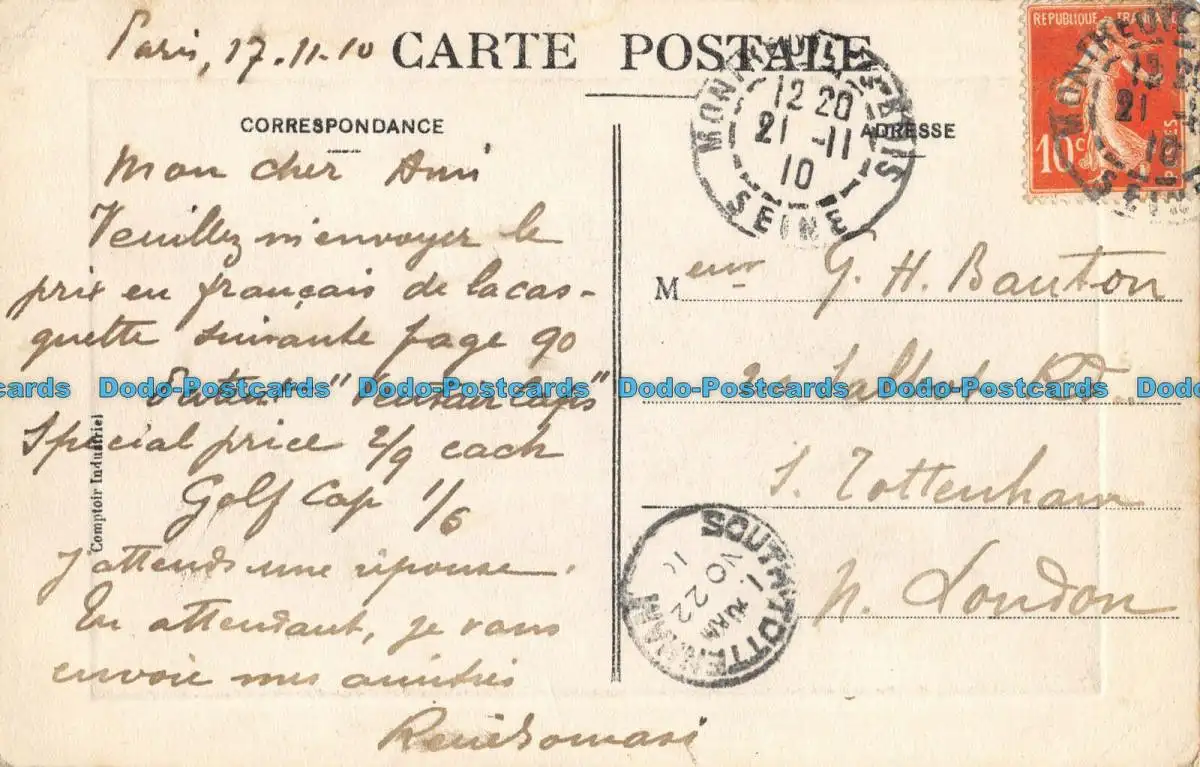 Paris, 17.11.10
CARTE POSTALE
CORRESPONDANCE
ADRESSE
Mon cher Ami
Veuillez m'envoyer le
prix en français de la cas-
quette suivante page 90
Special price 2/9 each
Golf Cap 1/6
J'attends une réponse.
En attendant, je vous
envoie mes amitiés
Comptoir Industriel
REPUBLIQUE FRANÇAISE
10c
MONTREUIL-SOUS-BOIS
12 20
21 -11
10
SEINE
MONTREUIL
12
21
10
SEINE
Meur G. H. Bauton
Talbot Rd
S. Tottenham
N. London
SOUTH TOTTENHAM
NO 22
10
Dodo-Postcards Dodo-Postcards Dodo-Postcards Dodo-Postcards Dodo-Postcards